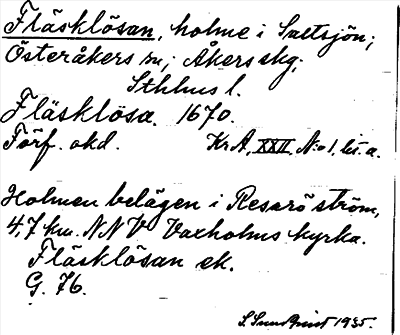 Fläsklösan, holme i Saltsjön;
Österåkers sn; Åkers skg;
Sthlms l.
Fläsklösa. 1670.
Förf. okd. Kr A, XXII, N:o 1, lit. a.
Holmen belägen i Resarö ström,
4,7 km. NNV Vaxholms kyrka.
Fläsklösan ek.
G. 76.
S. Sundquist 1935.